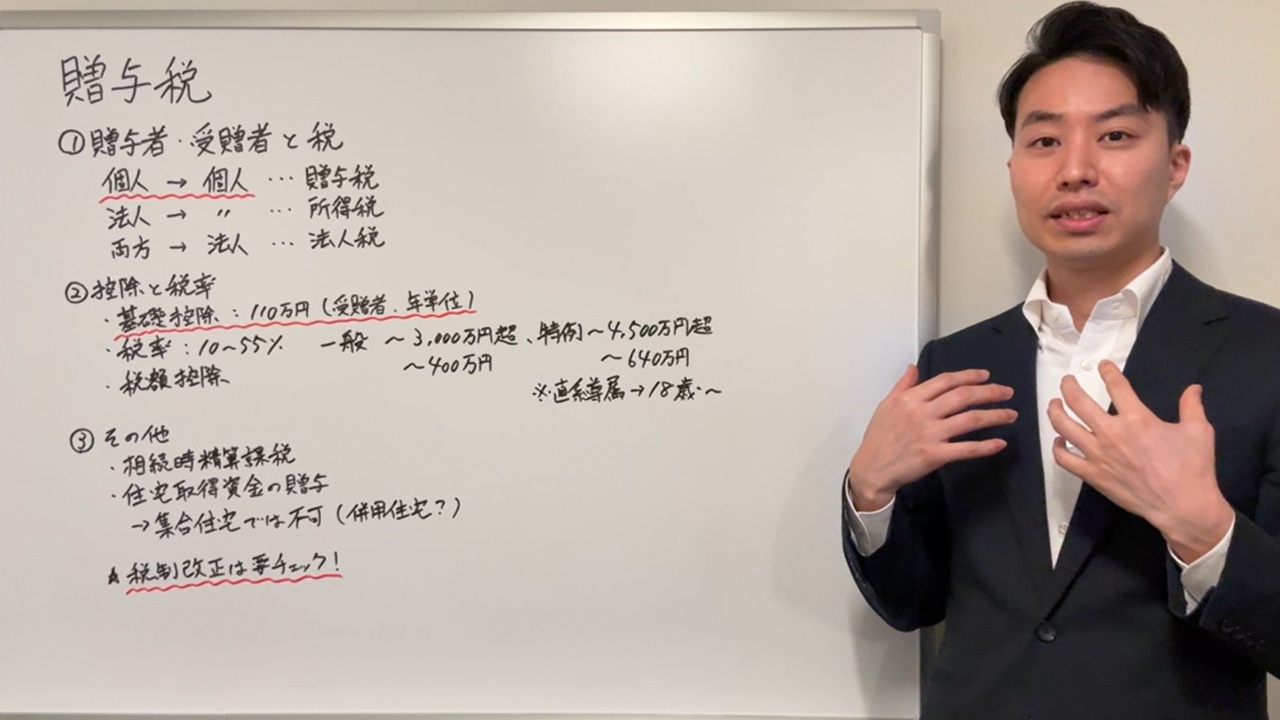 贈与税
①贈与者・受贈者と税
個人 → 個人 … 贈与税
法人 → 〃 … 所得税
両方 → 法人 … 法人税
②控除と税率
・基礎控除：110万円（受贈者、年単位）
・税率：10～55% 一般 ～3,000万円超、特例～4,500万円超
～400万円 ～640万円
・税額控除
※直系尊属→18歳～
③その他
・相続時精算課税
・住宅取得資金の贈与
→集合住宅では不可（併用住宅？）
税制改正は要チェック！